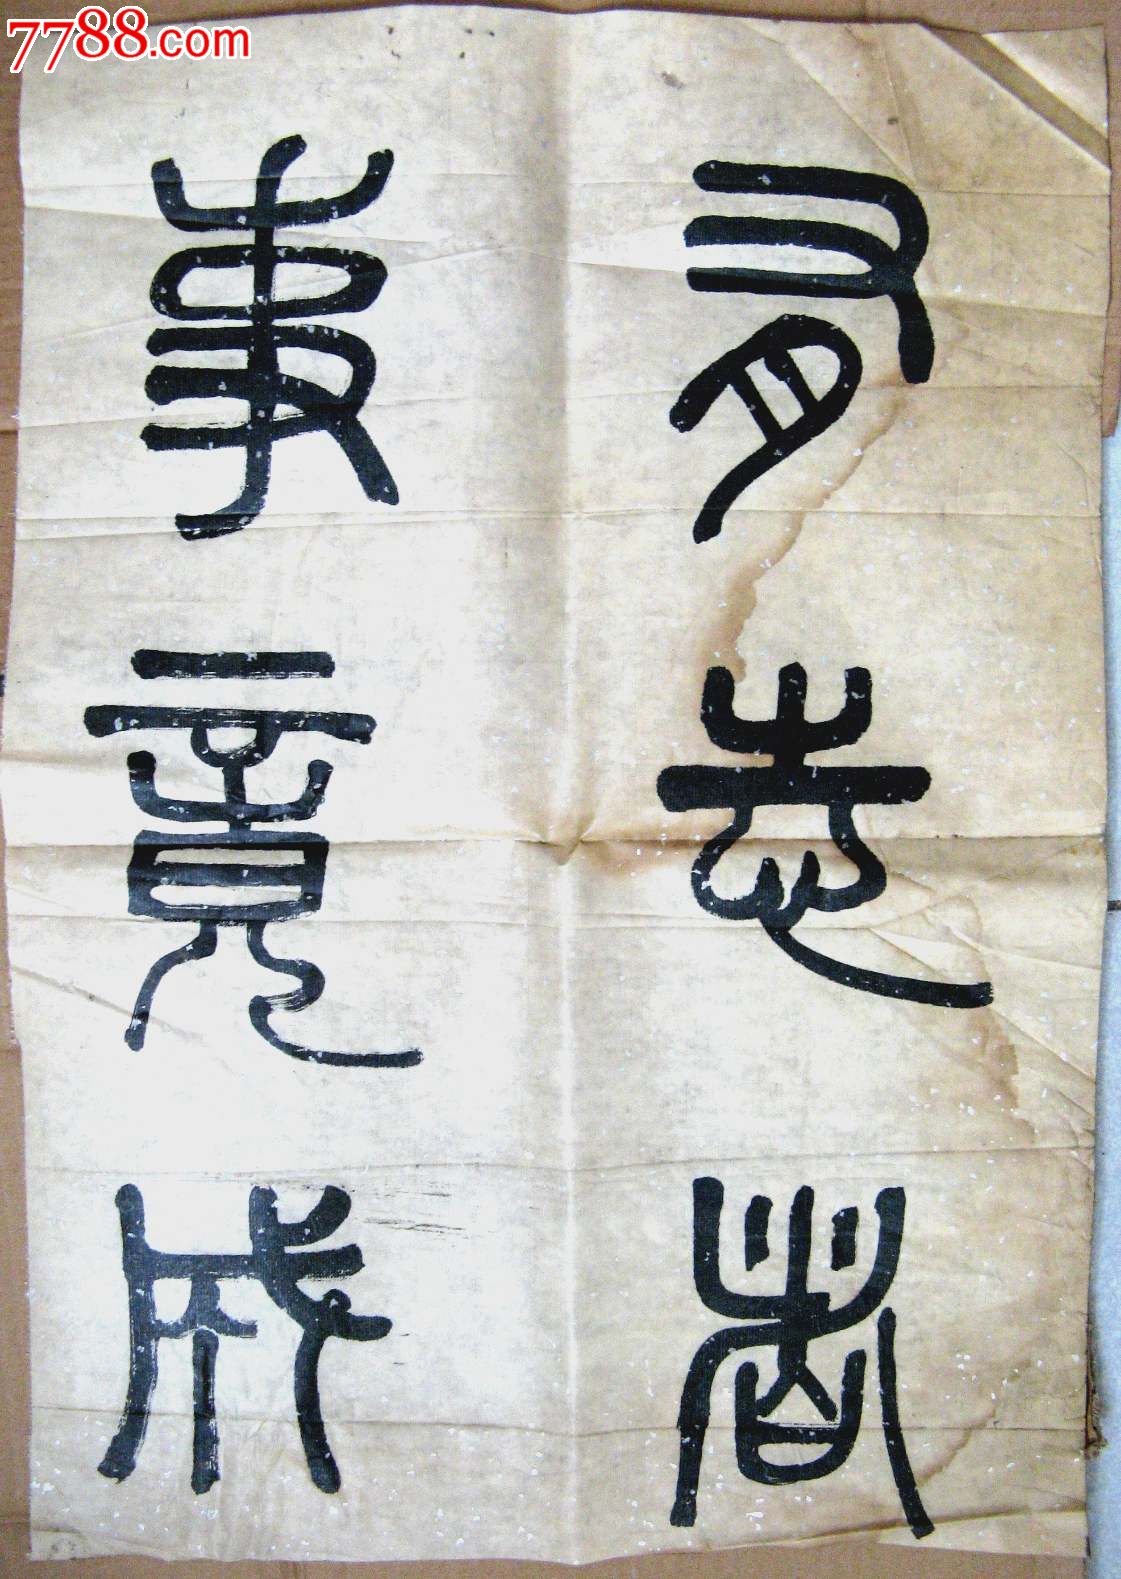 7788.com
有志者
事竟成